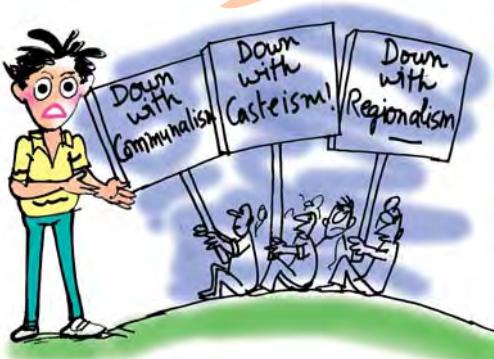 Down
with
Communalism
Down
with
Casteism!
Down
with
Regionalism